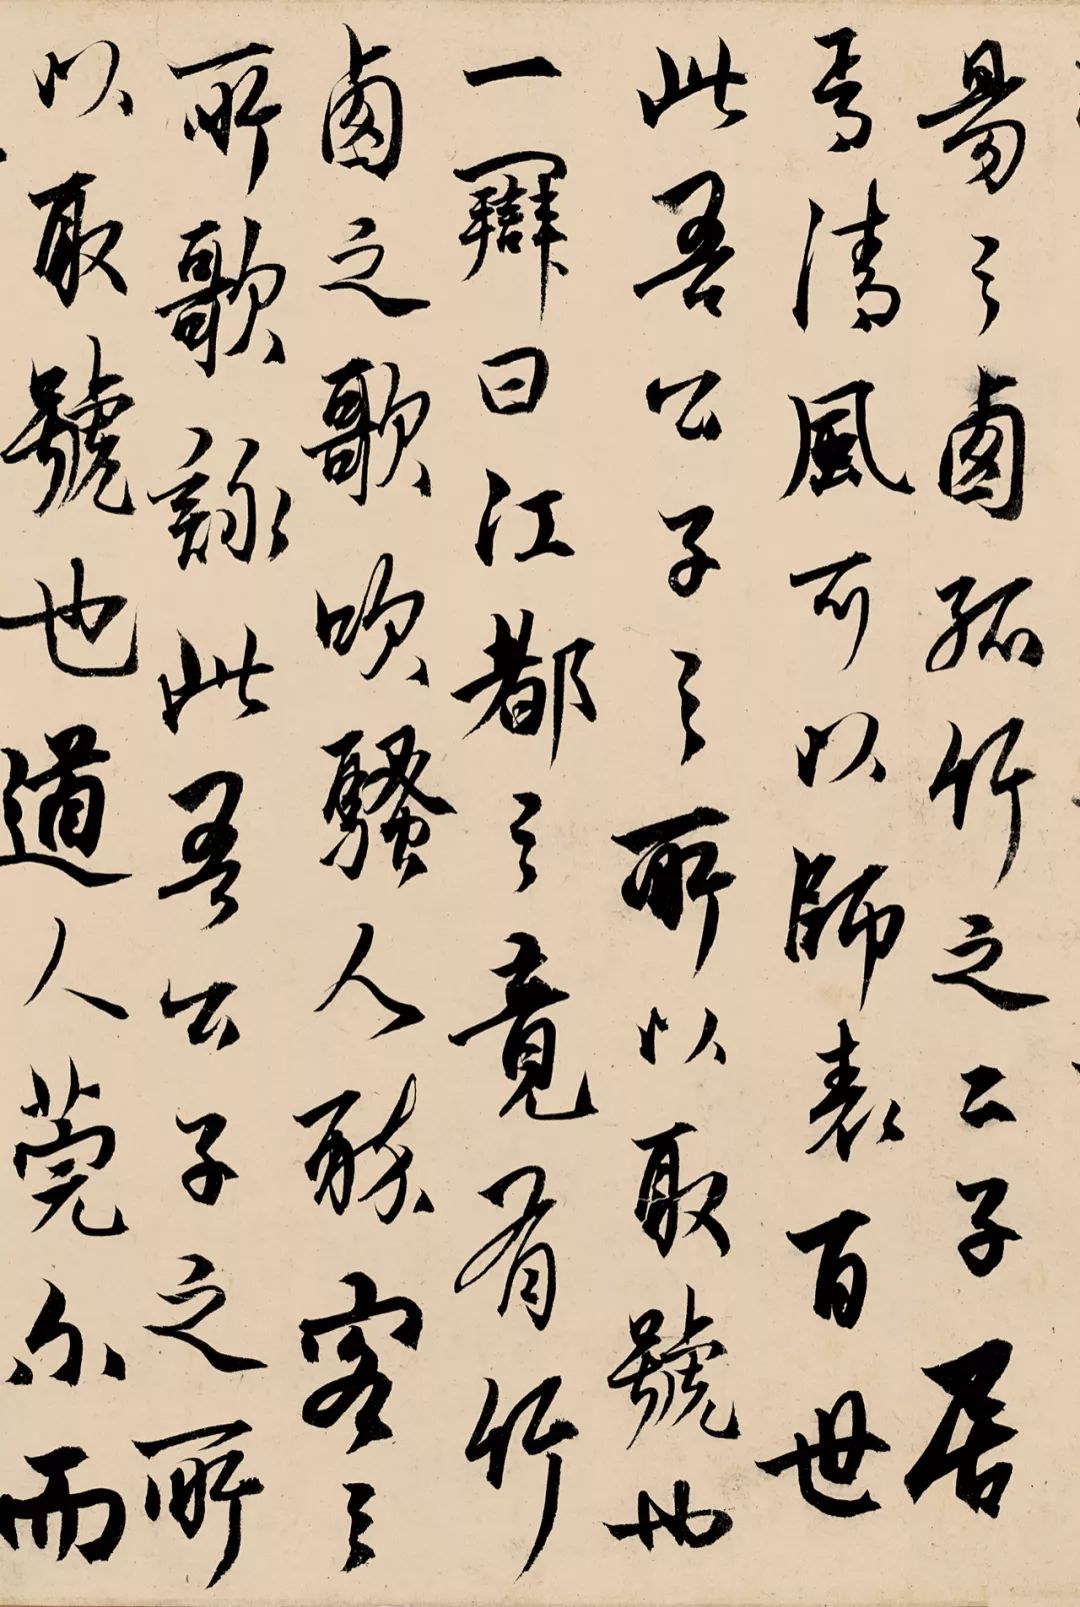 昜之卥孤竹之二子居
焉清風可以師表百世
此吾公子之所以取號也
一辯曰江都之竟有竹
卥之歌吹騷人醉客之
所歌詠此吾公子之所
以取號也道人莞尔而